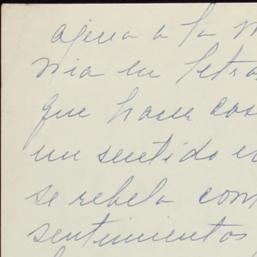 ajena a la
en letra
que hacer cos
un sentido e
se rebela com
sentimientos